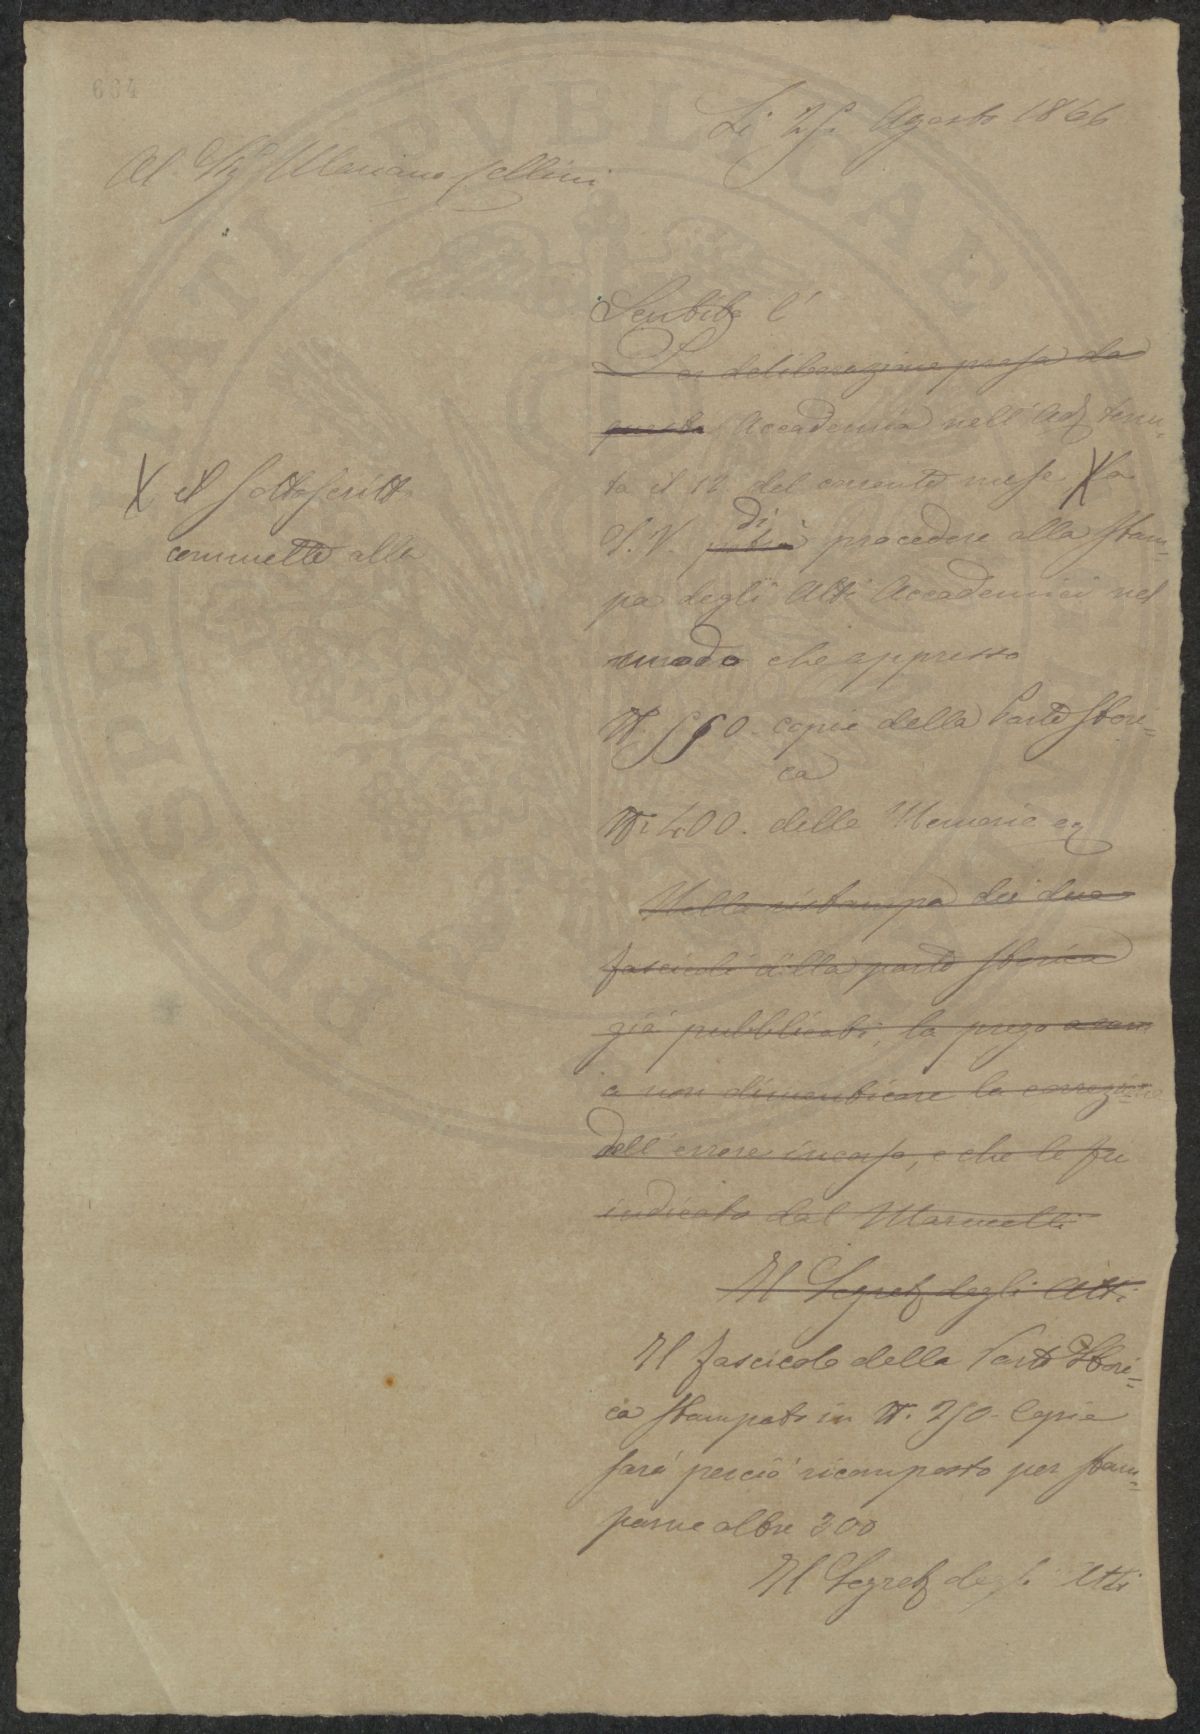 634
Li 25. Agosto 1866
Al Sig Mariano Cellini
Sentita l'
Per deliberazione presa da
questa Accademia nell'Adz tenu=
ta il 12 del corrente mese X la
X il sottoscritto
commette alla
S. V. di procedere alla stam=
pa degli Atti Accademici nel
modo che appresso
N. 550. copie della Parte Stori=
ca
N. 400. delle Memorie ez
Nella ristampa dei due
fascicoli della parte storica
già pubblicati, la prego
a non dimenticare la correzione
dell'errore incorso, e che le fu
indicato dal Marucelli
Il Segret degli Atti
Il fascicolo della Parte Stori=
ca stampato in N. 250. Copie
sarà perciò ricomposto per stam=
parne altre 300
Il Segret degli Atti
PROSPERITATI PVBLICAE